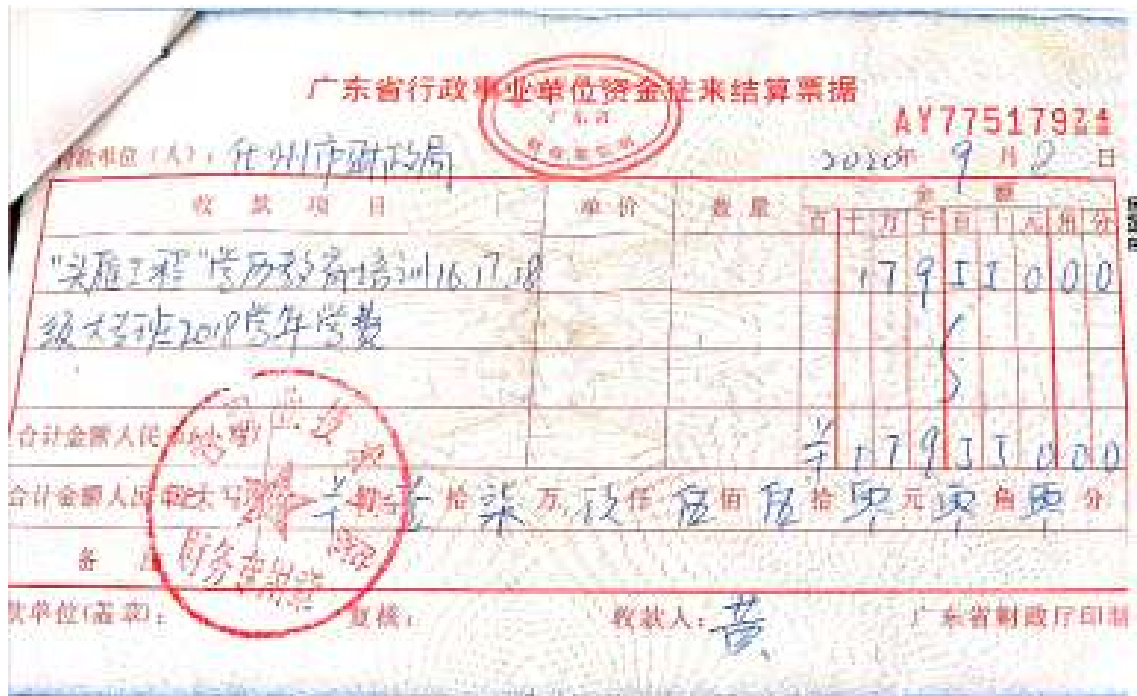 广东省行政事业单位资金往来结算票据
广东省
AY775179
付款单位（人）：化州市财政局 2020年9月8日
收款项目 单价 数量 金额
百十万千百十元角分
"头雁工程"学历教育培训16.17.18 17955000
级大专班2018学年学费
合计金额人民币(小写) ¥17955000
合计金额人民币(大写) ¥ 壹拾柒万玖仟伍佰伍拾零元零角零分
备
财务专用章
款单位(盖章)： 复核： 收款人：黄 广东省财政厅印制